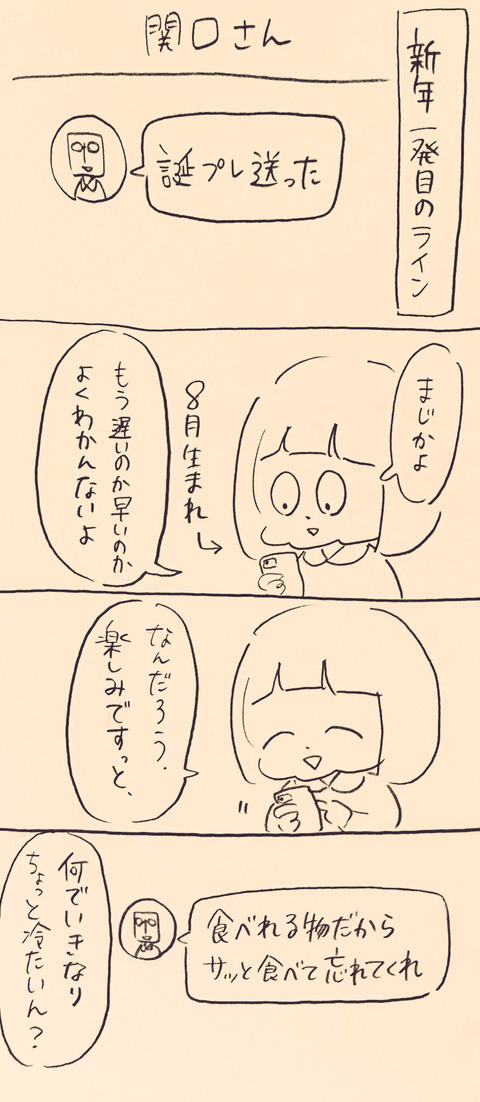 新年一発目のライン
関口さん
誕プレ送った
まじかよ
8月生まれ
もう遅いのか早いのか
よくわかんないよ
なんだろう、
楽しみですっと、
食べれる物だから
サッと食べて忘れてくれ
何でいきなり
ちょっと冷たいん？